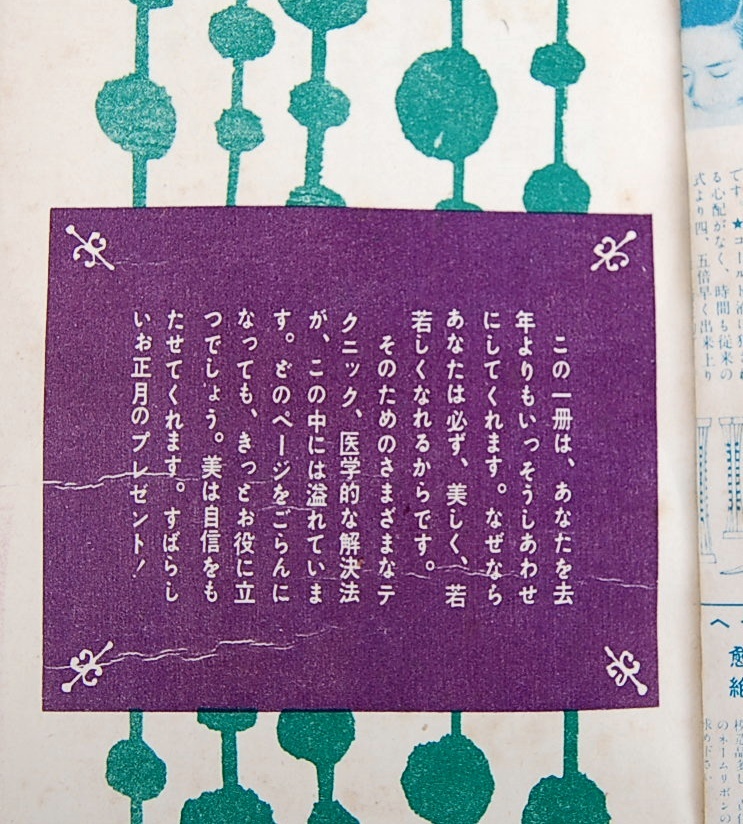 この一冊は、あなたを去
年よりもいっそうしあわせ
にしてくれます。なぜなら
あなたは必ず、美しく、若
若しくなれるからです。
そのためのさまざまなテ
クニック、医学的な解決法
が、この中には溢れていま
す。どのページをごらんに
なっても、きっとお役に立
つでしょう。美は自信をも
たせてくれます。すばらし
いお正月のプレゼント！
る心配がなく、時間も従来の
式より四、五倍早く出来上り